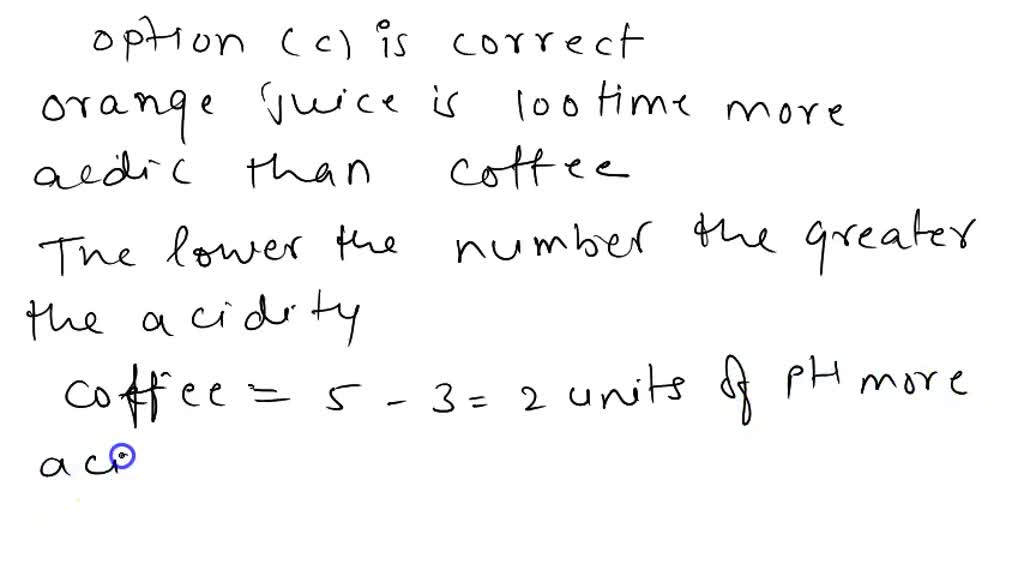 option (c) is correct
orange juice is 100 time more
acdic than coffee
The lower the number the greater
the acidity
coffee = 5 - 3 = 2 units of pH more
aci